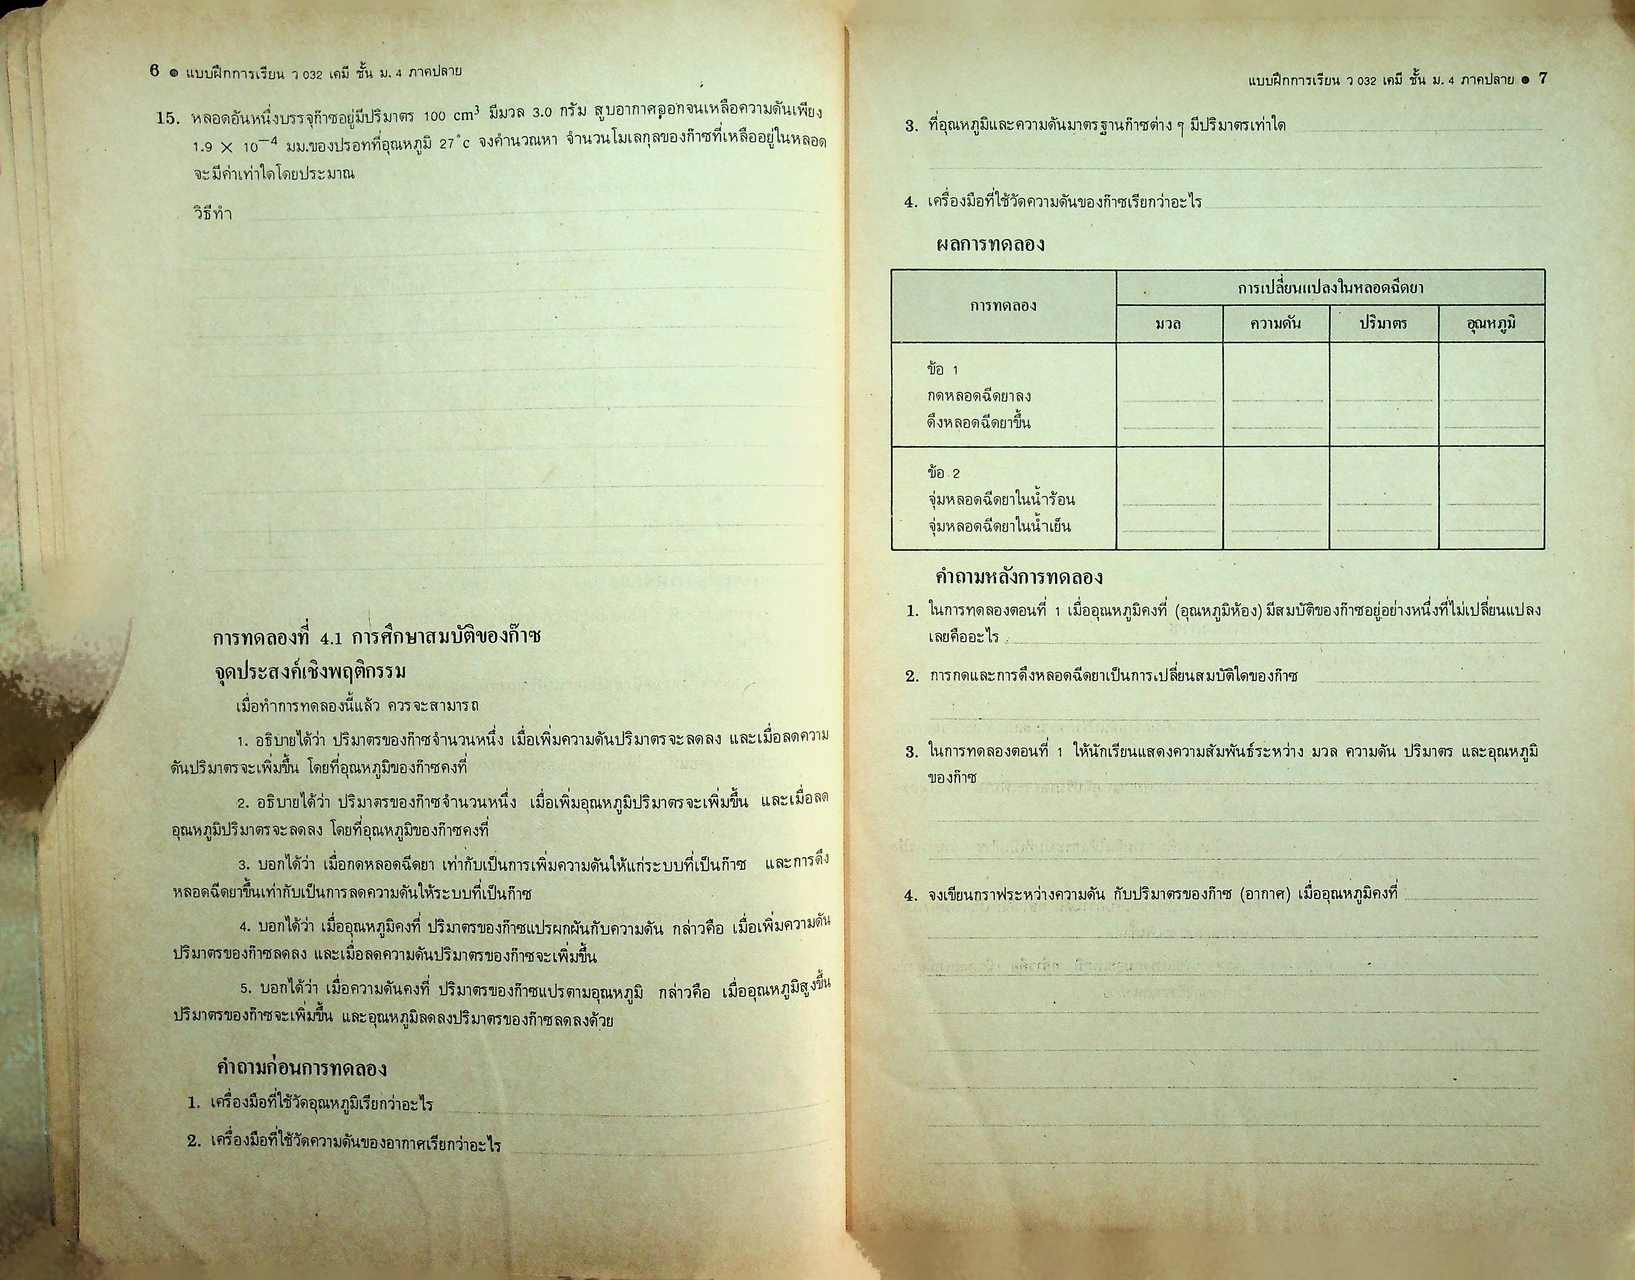 6 ● แบบฝึกการเรียน ว 032 เคมี ชั้น ม. 4 ภาคปลาย
15. หลอดอันหนึ่งบรรจุก๊าซอยู่มีปริมาตร 100 cm³ มีมวล 3.0 กรัม สูบอากาศออกจนเหลือความดันเพียง
1.9 × 10⁻⁴ มม.ของปรอทที่อุณหภูมิ 27°c จงคำนวณหา จำนวนโมเลกุลของก๊าซที่เหลืออยู่ในหลอด
จะมีค่าเท่าใดโดยประมาณ
วิธีทำ
การทดลองที่ 4.1 การศึกษาสมบัติของก๊าซ
จุดประสงค์เชิงพฤติกรรม
เมื่อทำการทดลองนี้แล้ว ควรจะสามารถ
1. อธิบายได้ว่า ปริมาตรของก๊าซจำนวนหนึ่ง เมื่อเพิ่มความดันปริมาตรจะลดลง และเมื่อลดความ
ดันปริมาตรจะเพิ่มขึ้น โดยที่อุณหภูมิของก๊าซคงที่
2. อธิบายได้ว่า ปริมาตรของก๊าซจำนวนหนึ่ง เมื่อเพิ่มอุณหภูมิปริมาตรจะเพิ่มขึ้น และเมื่อลด
อุณหภูมิปริมาตรจะลดลง โดยที่อุณหภูมิของก๊าซคงที่
3. บอกได้ว่า เมื่อกดหลอดฉีดยา เท่ากับเป็นการเพิ่มความดันให้แก่ระบบที่เป็นก๊าซ และการดึง
หลอดฉีดยาขึ้นเท่ากับเป็นการลดความดันให้ระบบที่เป็นก๊าซ
4. บอกได้ว่า เมื่ออุณหภูมิคงที่ ปริมาตรของก๊าซแปรผกผันกับความดัน กล่าวคือ เมื่อเพิ่มความดัน
ปริมาตรของก๊าซลดลง และเมื่อลดความดันปริมาตรของก๊าซจะเพิ่มขึ้น
5. บอกได้ว่า เมื่อความดันคงที่ ปริมาตรของก๊าซแปรตามอุณหภูมิ กล่าวคือ เมื่ออุณหภูมิสูงขึ้น
ปริมาตรของก๊าซจะเพิ่มขึ้น และอุณหภูมิลดลงปริมาตรของก๊าซลดลงด้วย
คำถามก่อนการทดลอง
1. เครื่องมือที่ใช้วัดอุณหภูมิเรียกว่าอะไร
2. เครื่องมือที่ใช้วัดความดันของอากาศเรียกว่าอะไร
แบบฝึกการเรียน ว 032 เคมี ชั้น ม. 4 ภาคปลาย ● 7
3. ที่อุณหภูมิและความดันมาตรฐานก๊าซต่าง ๆ มีปริมาตรเท่าใด
4. เครื่องมือที่ใช้วัดความดันของก๊าซเรียกว่าอะไร
ผลการทดลอง
การทดลอง
การเปลี่ยนแปลงในหลอดฉีดยา
มวล ความดัน ปริมาตร อุณหภูมิ
ข้อ 1
กดหลอดฉีดยาลง
ดึงหลอดฉีดยาขึ้น
ข้อ 2
จุ่มหลอดฉีดยาในน้ำร้อน
จุ่มหลอดฉีดยาในน้ำเย็น
คำถามหลังการทดลอง
1. ในการทดลองตอนที่ 1 เมื่ออุณหภูมิคงที่ (อุณหภูมิห้อง) มีสมบัติของก๊าซอยู่อย่างหนึ่งที่ไม่เปลี่ยนแปลง
เลยคืออะไร
2. การกดและการดึงหลอดฉีดยาเป็นการเปลี่ยนสมบัติใดของก๊าซ
3. ในการทดลองตอนที่ 1 ให้นักเรียนแสดงความสัมพันธ์ระหว่าง มวล ความดัน ปริมาตร และอุณหภูมิ
ของก๊าซ
4. จงเขียนกราฟระหว่างความดัน กับปริมาตรของก๊าซ (อากาศ) เมื่ออุณหภูมิคงที่